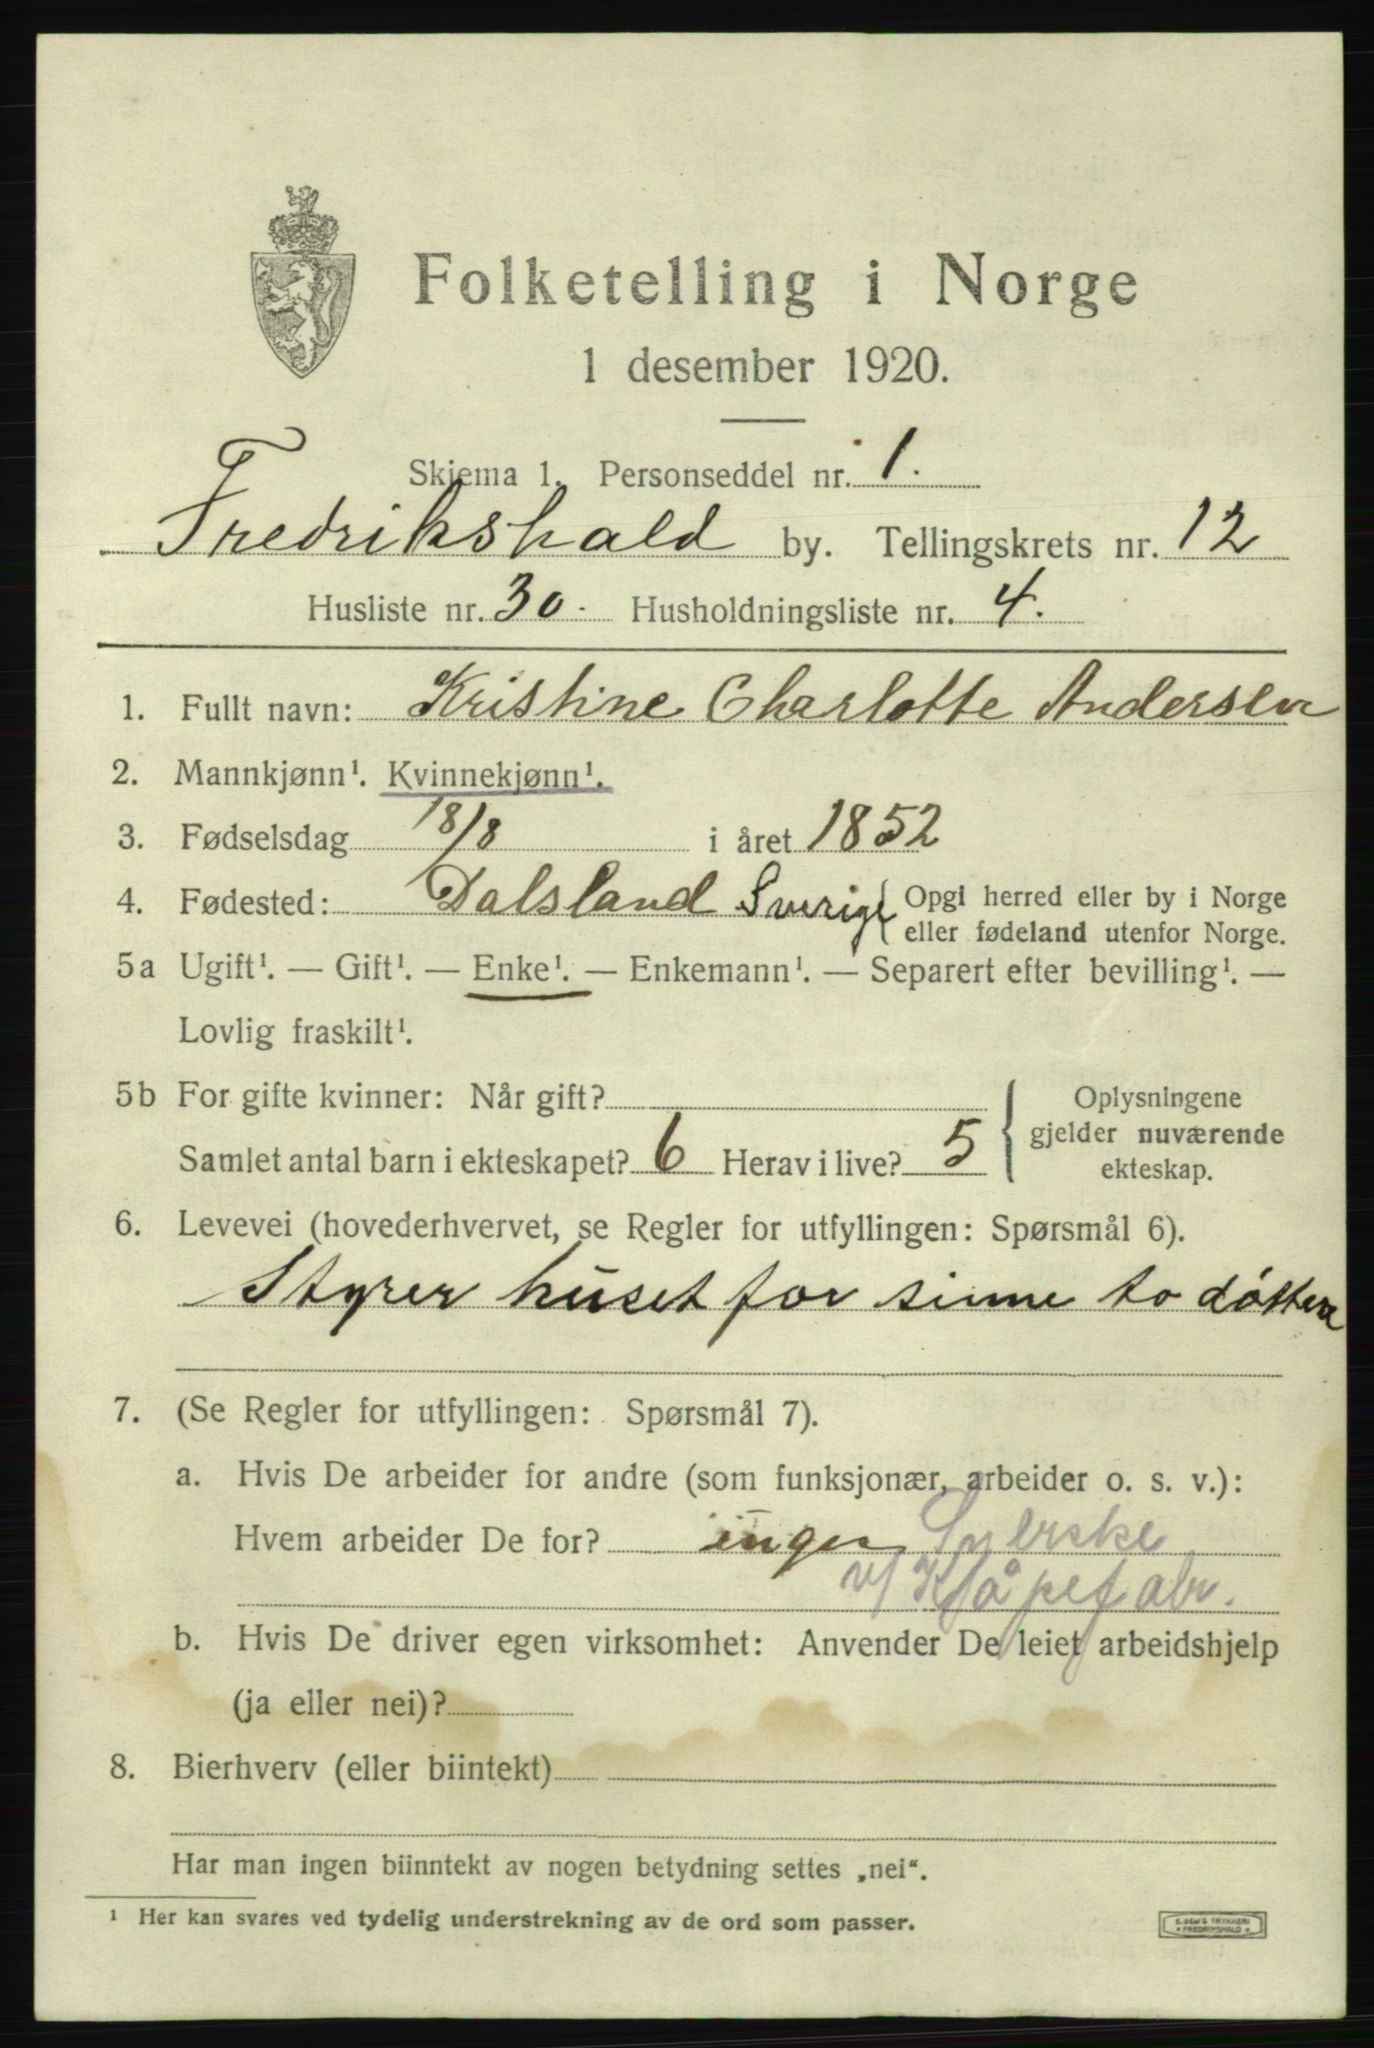 Folketelling i Norge
1 desember 1920.
Skjema 1. Personseddel nr. 1.
Fredrikshald by. Tellingskrets nr. 12
Husliste nr. 30. Husholdningsliste nr. 4.
1. Fullt navn: Kristine Charlotte Andersen
2. Mannkjønn¹. Kvinnekjønn¹.
3. Fødselsdag 18/8 i året 1852
4. Fødested: Dalsland Sverige { Opgi herred eller by i Norge
eller fødeland utenfor Norge.
5a Ugift¹. — Gift¹. — Enke¹. — Enkemann¹. — Separert efter bevilling¹. —
Lovlig fraskilt¹.
5b For gifte kvinner: Når gift?
Samlet antal barn i ekteskapet? 6 Herav i live? 5
{ Oplysningene
gjelder nuværende
ekteskap.
6. Levevei (hovederhvervet, se Regler for utfyllingen: Spørsmål 6).
Styrer huset for sinne to døttere
7. (Se Regler for utfyllingen: Spørsmål 7).
a. Hvis De arbeider for andre (som funksjonær, arbeider o. s. v.):
Hvem arbeider De for? ingen Syerske
v/ Kåpefabr.
b. Hvis De driver egen virksomhet: Anvender De leiet arbeidshjelp
(ja eller nei)?
8. Bierhverv (eller biintekt)
Har man ingen biinntekt av nogen betydning settes „nei“.
¹ Her kan svares ved tydelig understrekning av de ord som passer.
TRYKKERI
FREDRIKSHALD